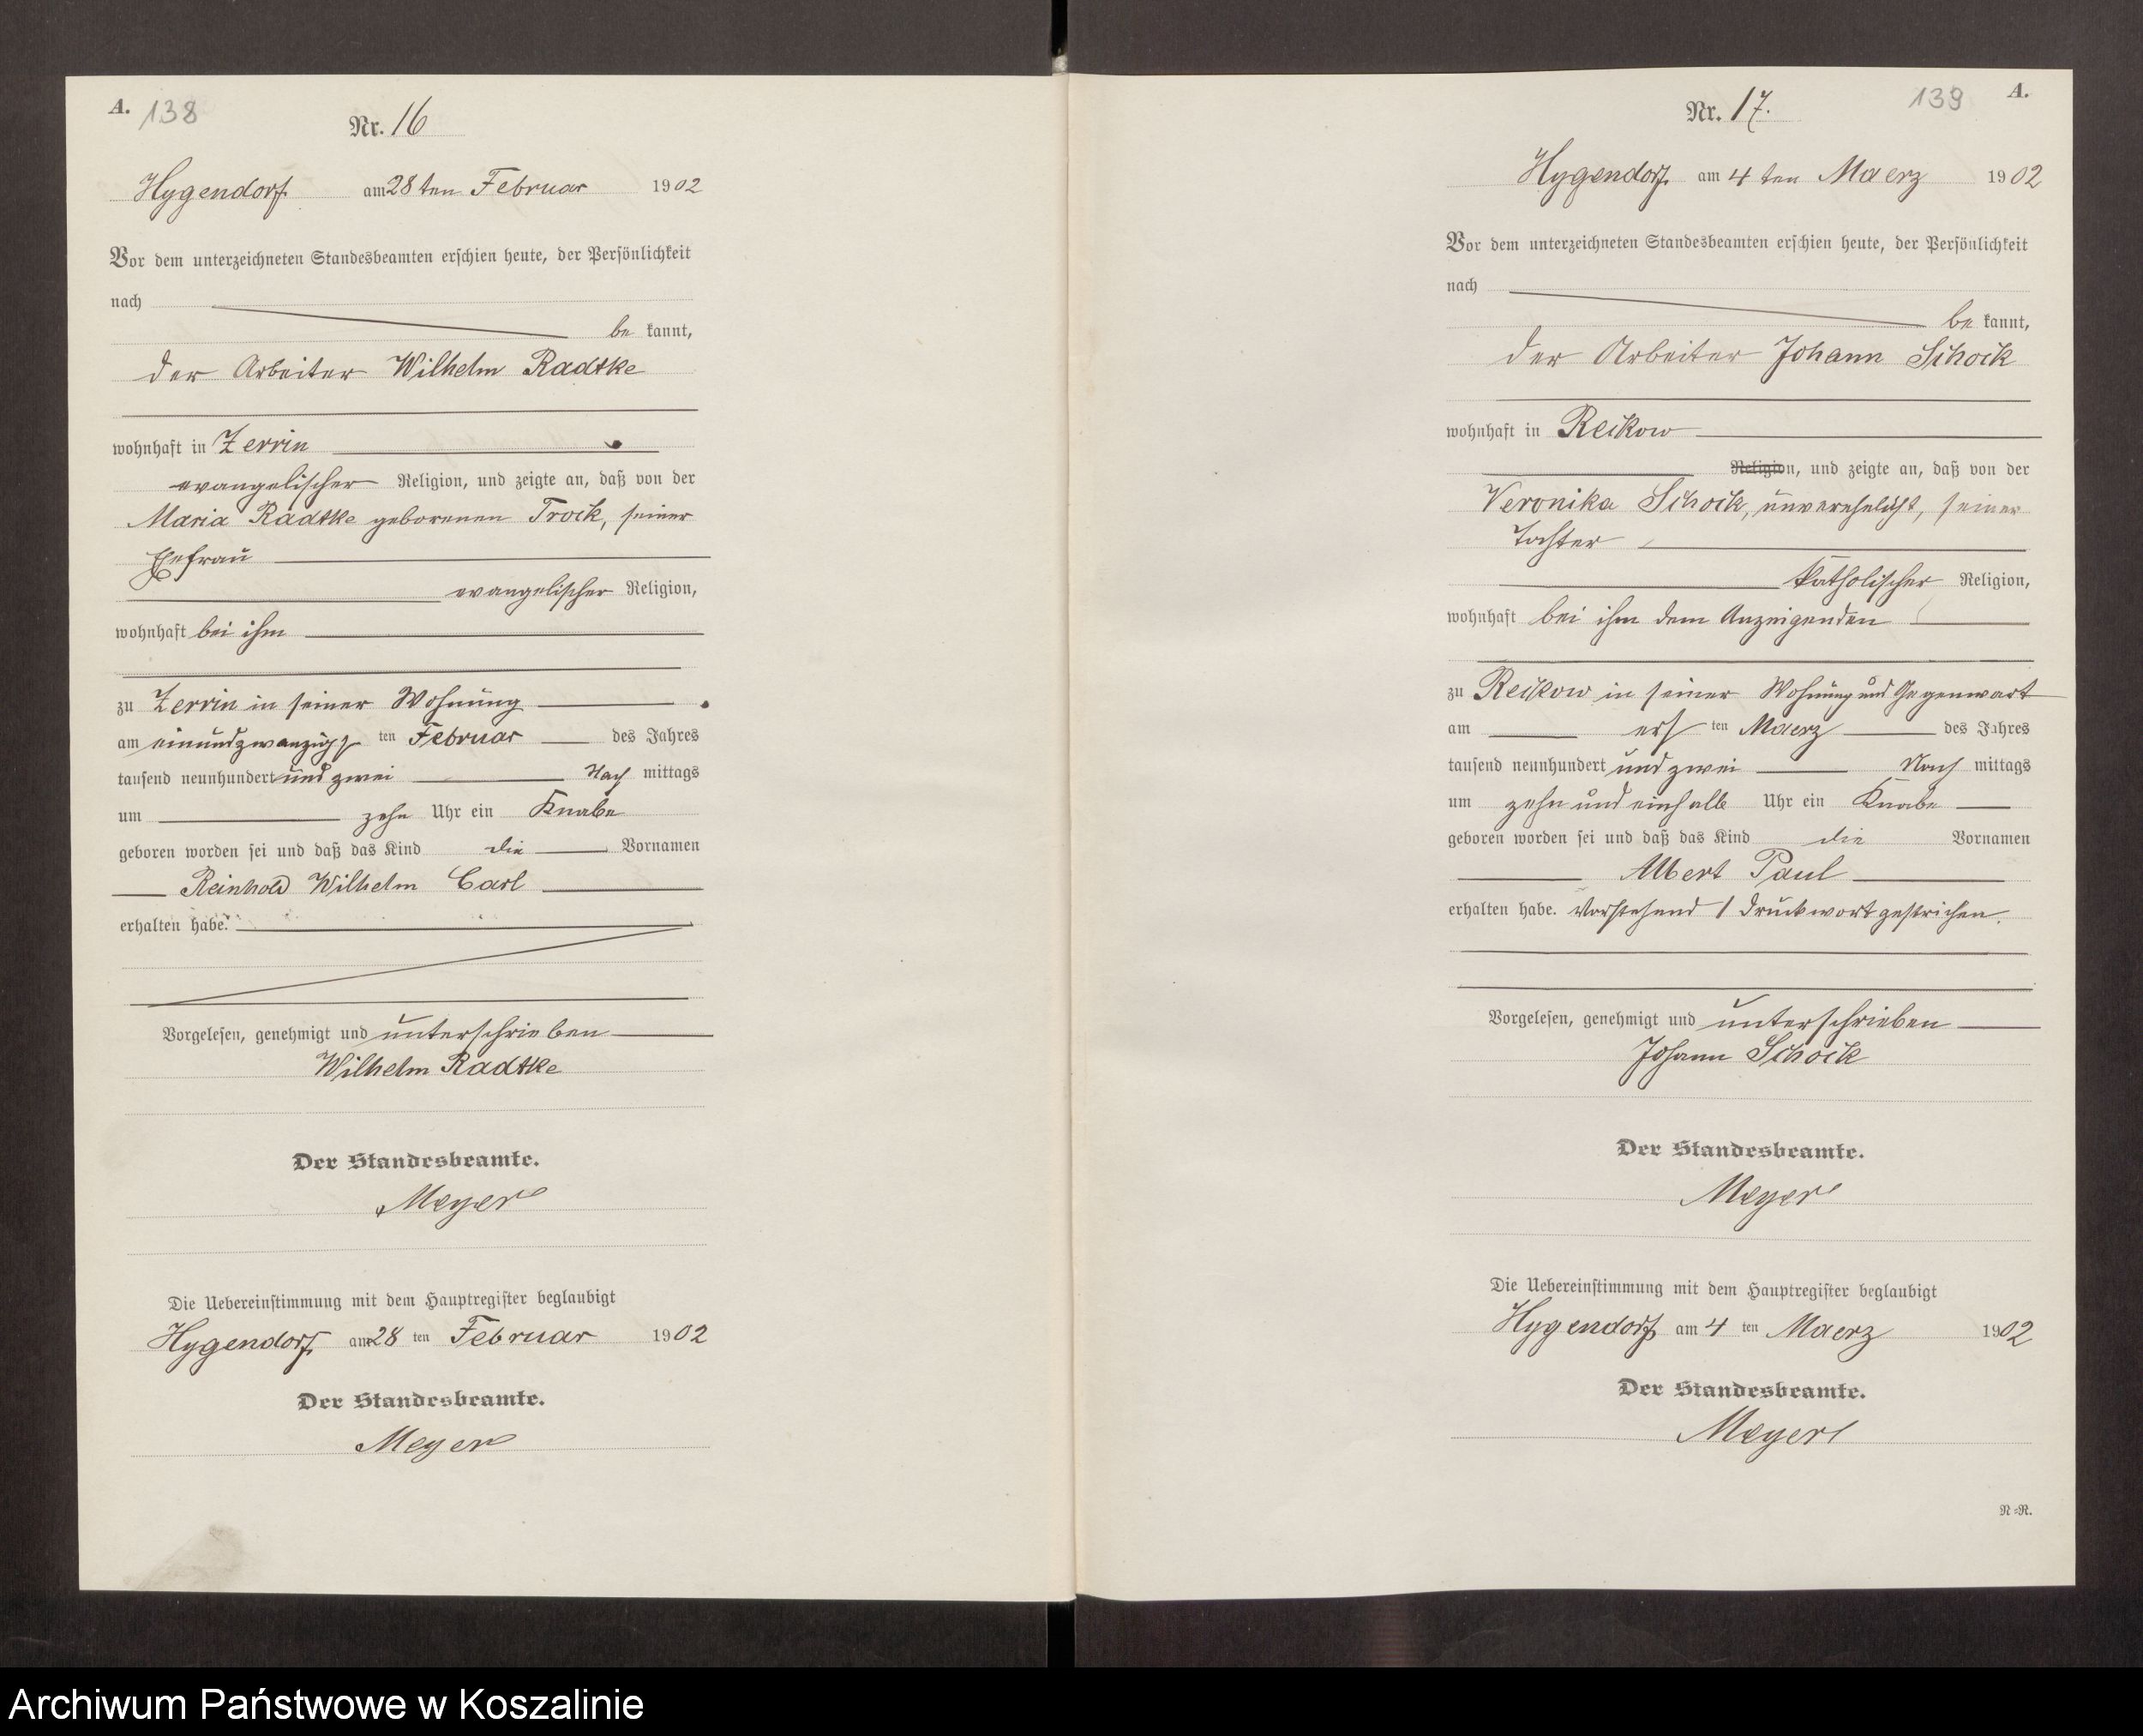 A. 138
Nr. 16
Hygendorf am 28 ten Februar 1902
Vor dem unterzeichneten Standesbeamten erschien heute, der Persönlichkeit
nach
be kannt,
der Arbeiter Wilhelm Radtke
wohnhaft in Zerrin
evangelischer Religion, und zeigte an, daß von der
Maria Radtke geborenen Trock, seiner
Ehefrau
evangelischer Religion,
wohnhaft bei ihm
zu Zerrin in seiner Wohnung
am einundzwanzigs ten Februar des Jahres
tausend neunhundert und zwei Nach mittags
um zehn Uhr ein Knabe
geboren worden sei und daß das Kind die Vornamen
Reinhold Wilhelm Carl
erhalten habe.
Vorgelesen, genehmigt und unterschrieben
Wilhelm Radtke
Der Standesbeamte.
Meyer
Die Uebereinstimmung mit dem Hauptregister beglaubigt
Hygendorf am 28 ten Februar 1902
Der Standesbeamte.
Meyer
139 A.
Nr. 17.
Hygendorf am 4 ten Maerz 1902
Vor dem unterzeichneten Standesbeamten erschien heute, der Persönlichkeit
nach
be kannt,
der Arbeiter Johann Schock
wohnhaft in Reckow
Religion, und zeigte an, daß von der
Veronika Schock, unverehelicht, seiner
Tochter
katholischer Religion,
wohnhaft bei ihm dem Anzeigenden
zu Reckow in seiner Wohnung und Gegenwart
am ers ten Maerz des Jahres
tausend neunhundert und zwei Nach mittags
um zehn und einhalb Uhr ein Knabe
geboren worden sei und daß das Kind die Vornamen
Albert Paul
erhalten habe. Vorstehend 1 Druckwort gestrichen.
Vorgelesen, genehmigt und unterschrieben
Johann Schock
Der Standesbeamte.
Meyer
Die Uebereinstimmung mit dem Hauptregister beglaubigt
Hygendorf am 4 ten Maerz 1902
Der Standesbeamte.
Meyer
N=R.
Archiwum Państwowe w Koszalinie